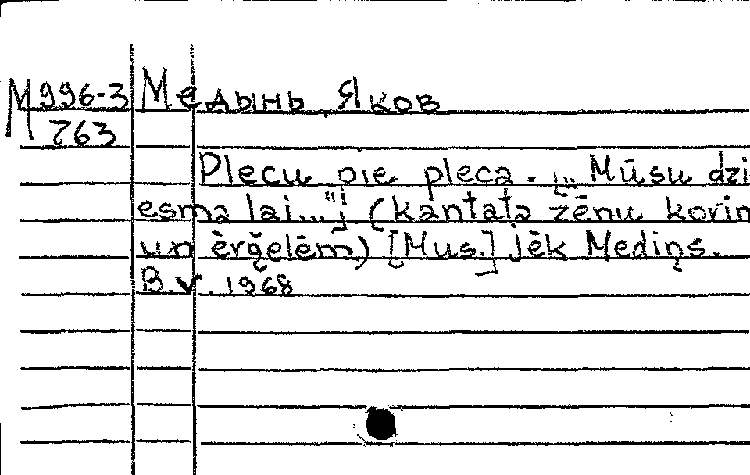 М 996-3 Медынь, Яков
763
Plecu pie pleca. [„Mūsu dzi
esma lai..."] (kantata zēnu korim
un ērģelēm) [Mus.] Jēk Mediņš.
B.v. 1968